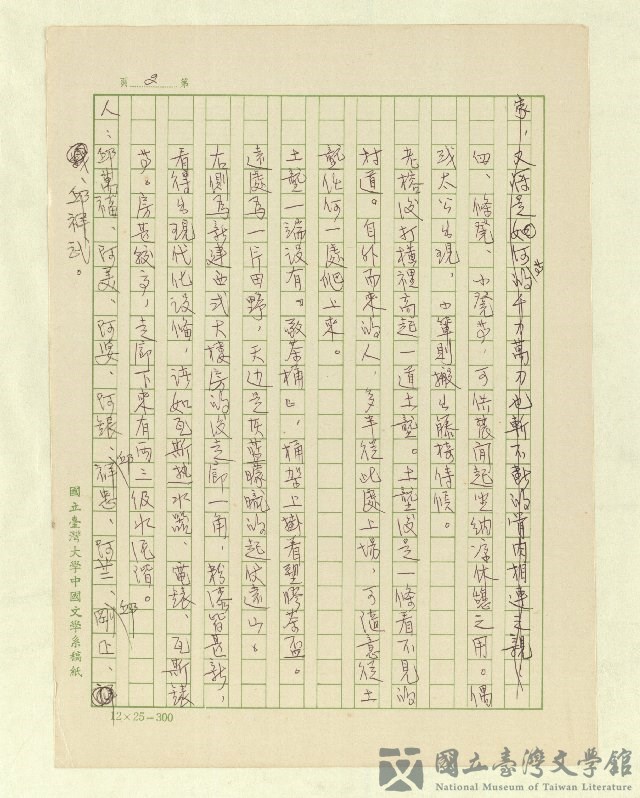 第2頁
家，又像是如何的千刀萬刀也斬不斷的骨肉相連之親！
四、條凳、小凳等，可供農閒起坐納涼休憩之用。偶
或太公出現，小輩則搬出藤椅侍候。
老榕後打橫裡高起一道土墼。土墼後是一條看不見的
村道。自外而來的人，多半從此處上場，可隨意從土
墼任何一處爬上來。
土墼一端設有「奉茶桶」，桶架上掛着塑膠茶盃。
遠處為一片田野，天边是灰藍朦朧的起伏遠山。
右側為新建西式大樓房的後走廊一角，粉漆皆甚新，
看得出現代化設備，諸如瓦斯熱水器、電錶、瓦斯錶
等。房基較高，走廊下來有兩三級水泥階。
人：邱萬福、阿美、阿婆、阿銀、邱祥忠、阿芒、邱剛正、
邱祥武。
國立臺灣大學中國文學系稿紙
12×25－300
國立臺灣文學館
National Museum of Taiwan Literature